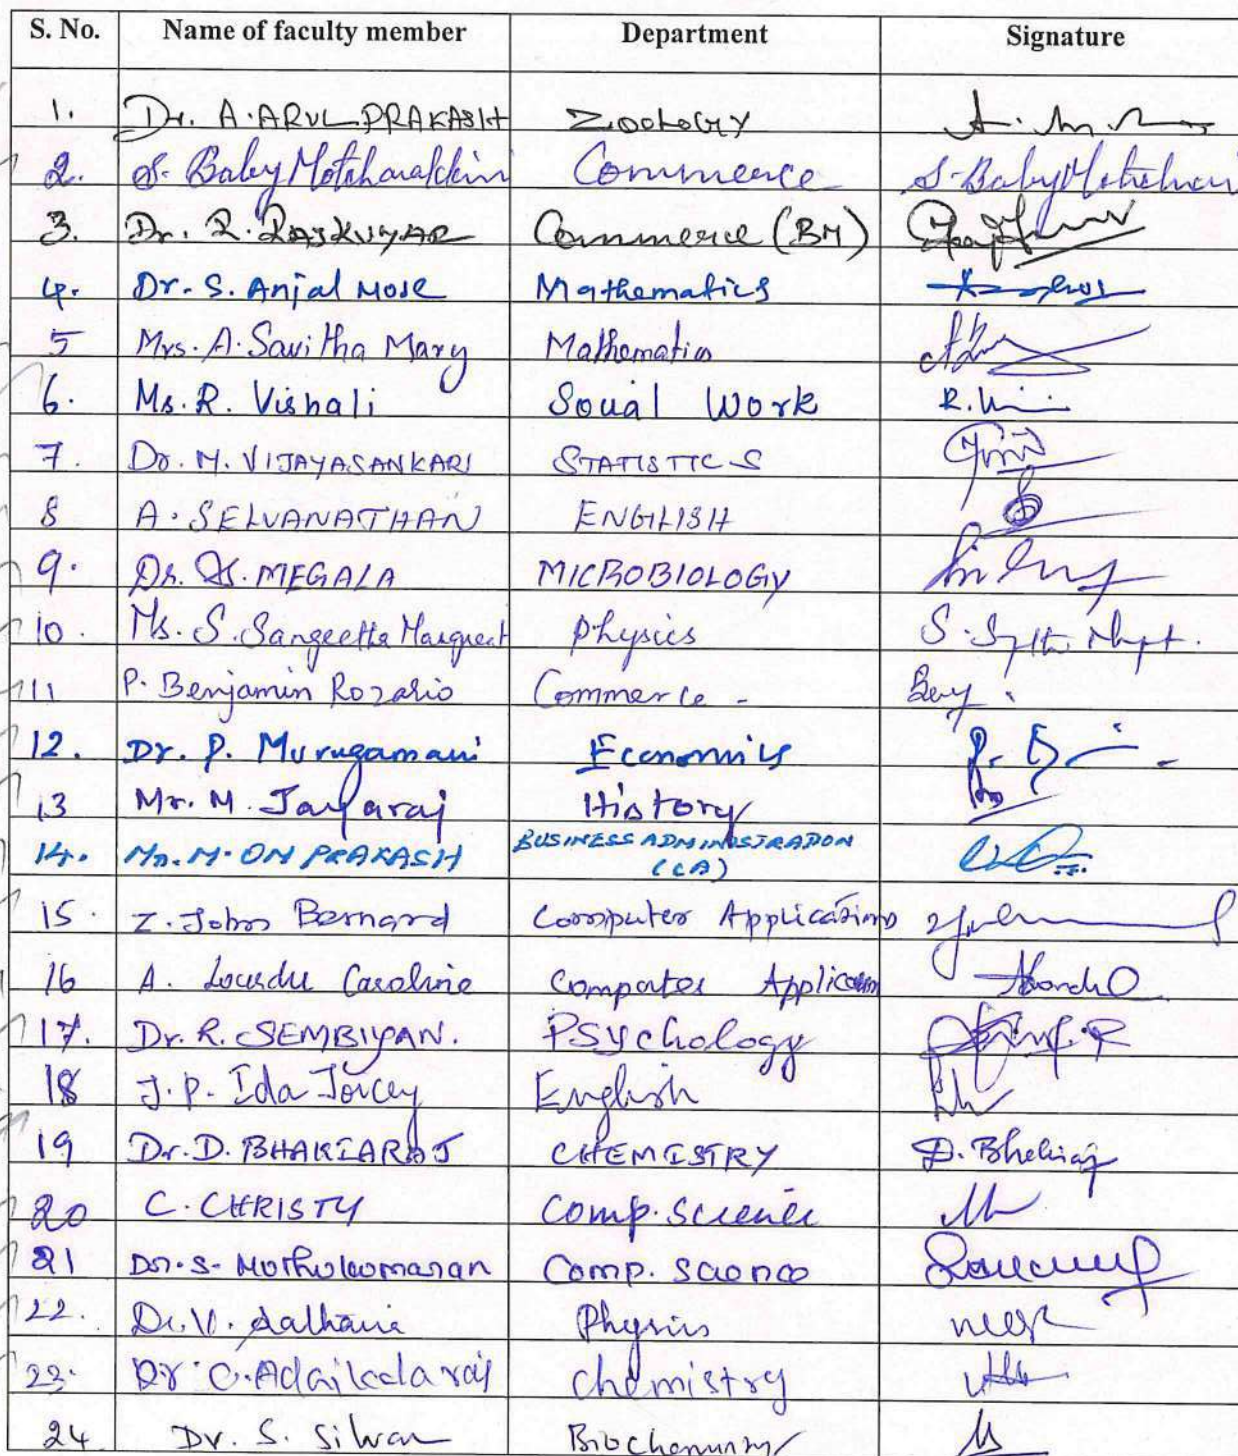 S. No. Name of faculty member Department Signature
1. Dr. A. ARUL PRAKASH Zoology
2. S. Baby Motcharakkini Commerce S. Baby Motcharak
3. Dr. R. RAJKUMAR Commerce (BM)
4. Dr. S. Anjal Mose Mathematics
5 Mrs. A. Savitha Mary Mathematics
6. Ms. R. Vishali Social Work R. Vi
7. Dr. M. VIJAYASANKARI STATISTICS
8 A. SELVANATHAN ENGLISH
9. Dr. MEGALA MICROBIOLOGY
10. Ms. S. Sangeetha Margreat Physics
11 P. Benjamin Rozario Commerce - Benj
12. Dr. P. Murugamani Economics
13 Mr. M. Jayaraj History
14. Mr. M. OM PRAKASH BUSINESS ADMINISTRATION
(CA)
15. Z. John Bernard Computer Applications
16 A. Lourdu Caroline Computer Application
17. Dr. R. SEMBIYAN. PSychology
18 J. P. Ida Joicey English
19 Dr. D. BHAKIARAJ CHEMISTRY D. Bhakiaraj
20 C. CHRISTY Comp. Science
21 Dr. S. Muthukumaran Comp. Science
22. Dr. V. Physics
23. Dr C. Adaikalaraj chemistry
24 Dr. S. Silvan Biochemistry